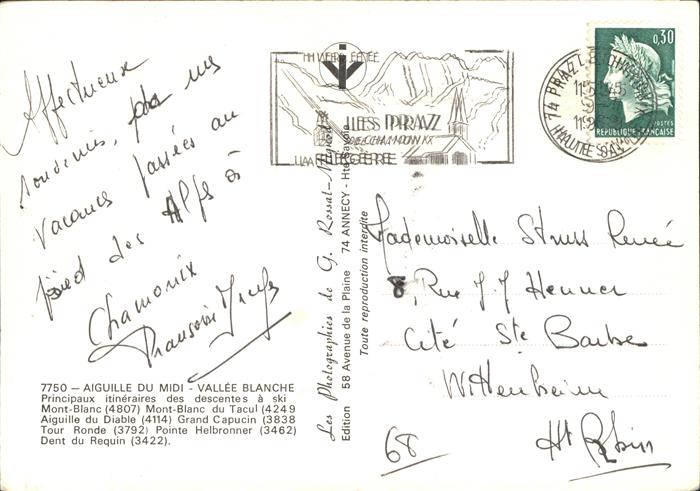 Affectueux
souvenirs, de mes
vacances passées au
pied des Alpes à
Chamonix
Françoise
7750 — AIGUILLE DU MIDI - VALLÉE BLANCHE
Principaux itinéraires des descentes à ski
Mont-Blanc (4807) Mont-Blanc du Tacul (4249
Aiguille du Diable (4114) Grand Capucin (3838
Tour Ronde (3792) Pointe Helbronner (3462)
Dent du Requin (3422).
Les Photographies de G. Rossat-Mignod
Edition 58 Avenue de la Plaine 74 ANNECY - Hte Savoie
Toute reproduction interdite
LES PRAZ
DE CHAMONIX
0,30
POSTES
REPUBLIQUE FRANÇAISE
Mademoiselle Struss Renée
8, Rue J.J Henner
Cité Ste Barbe
Wittenheim
68 Ht Rhin